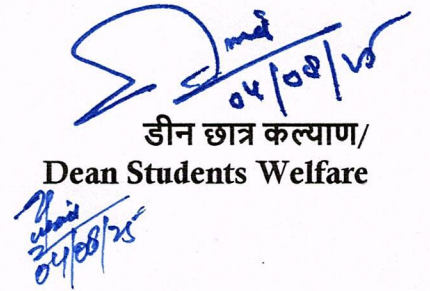 04/08/25
डीन छात्र कल्याण/
Dean Students Welfare
04/08/25